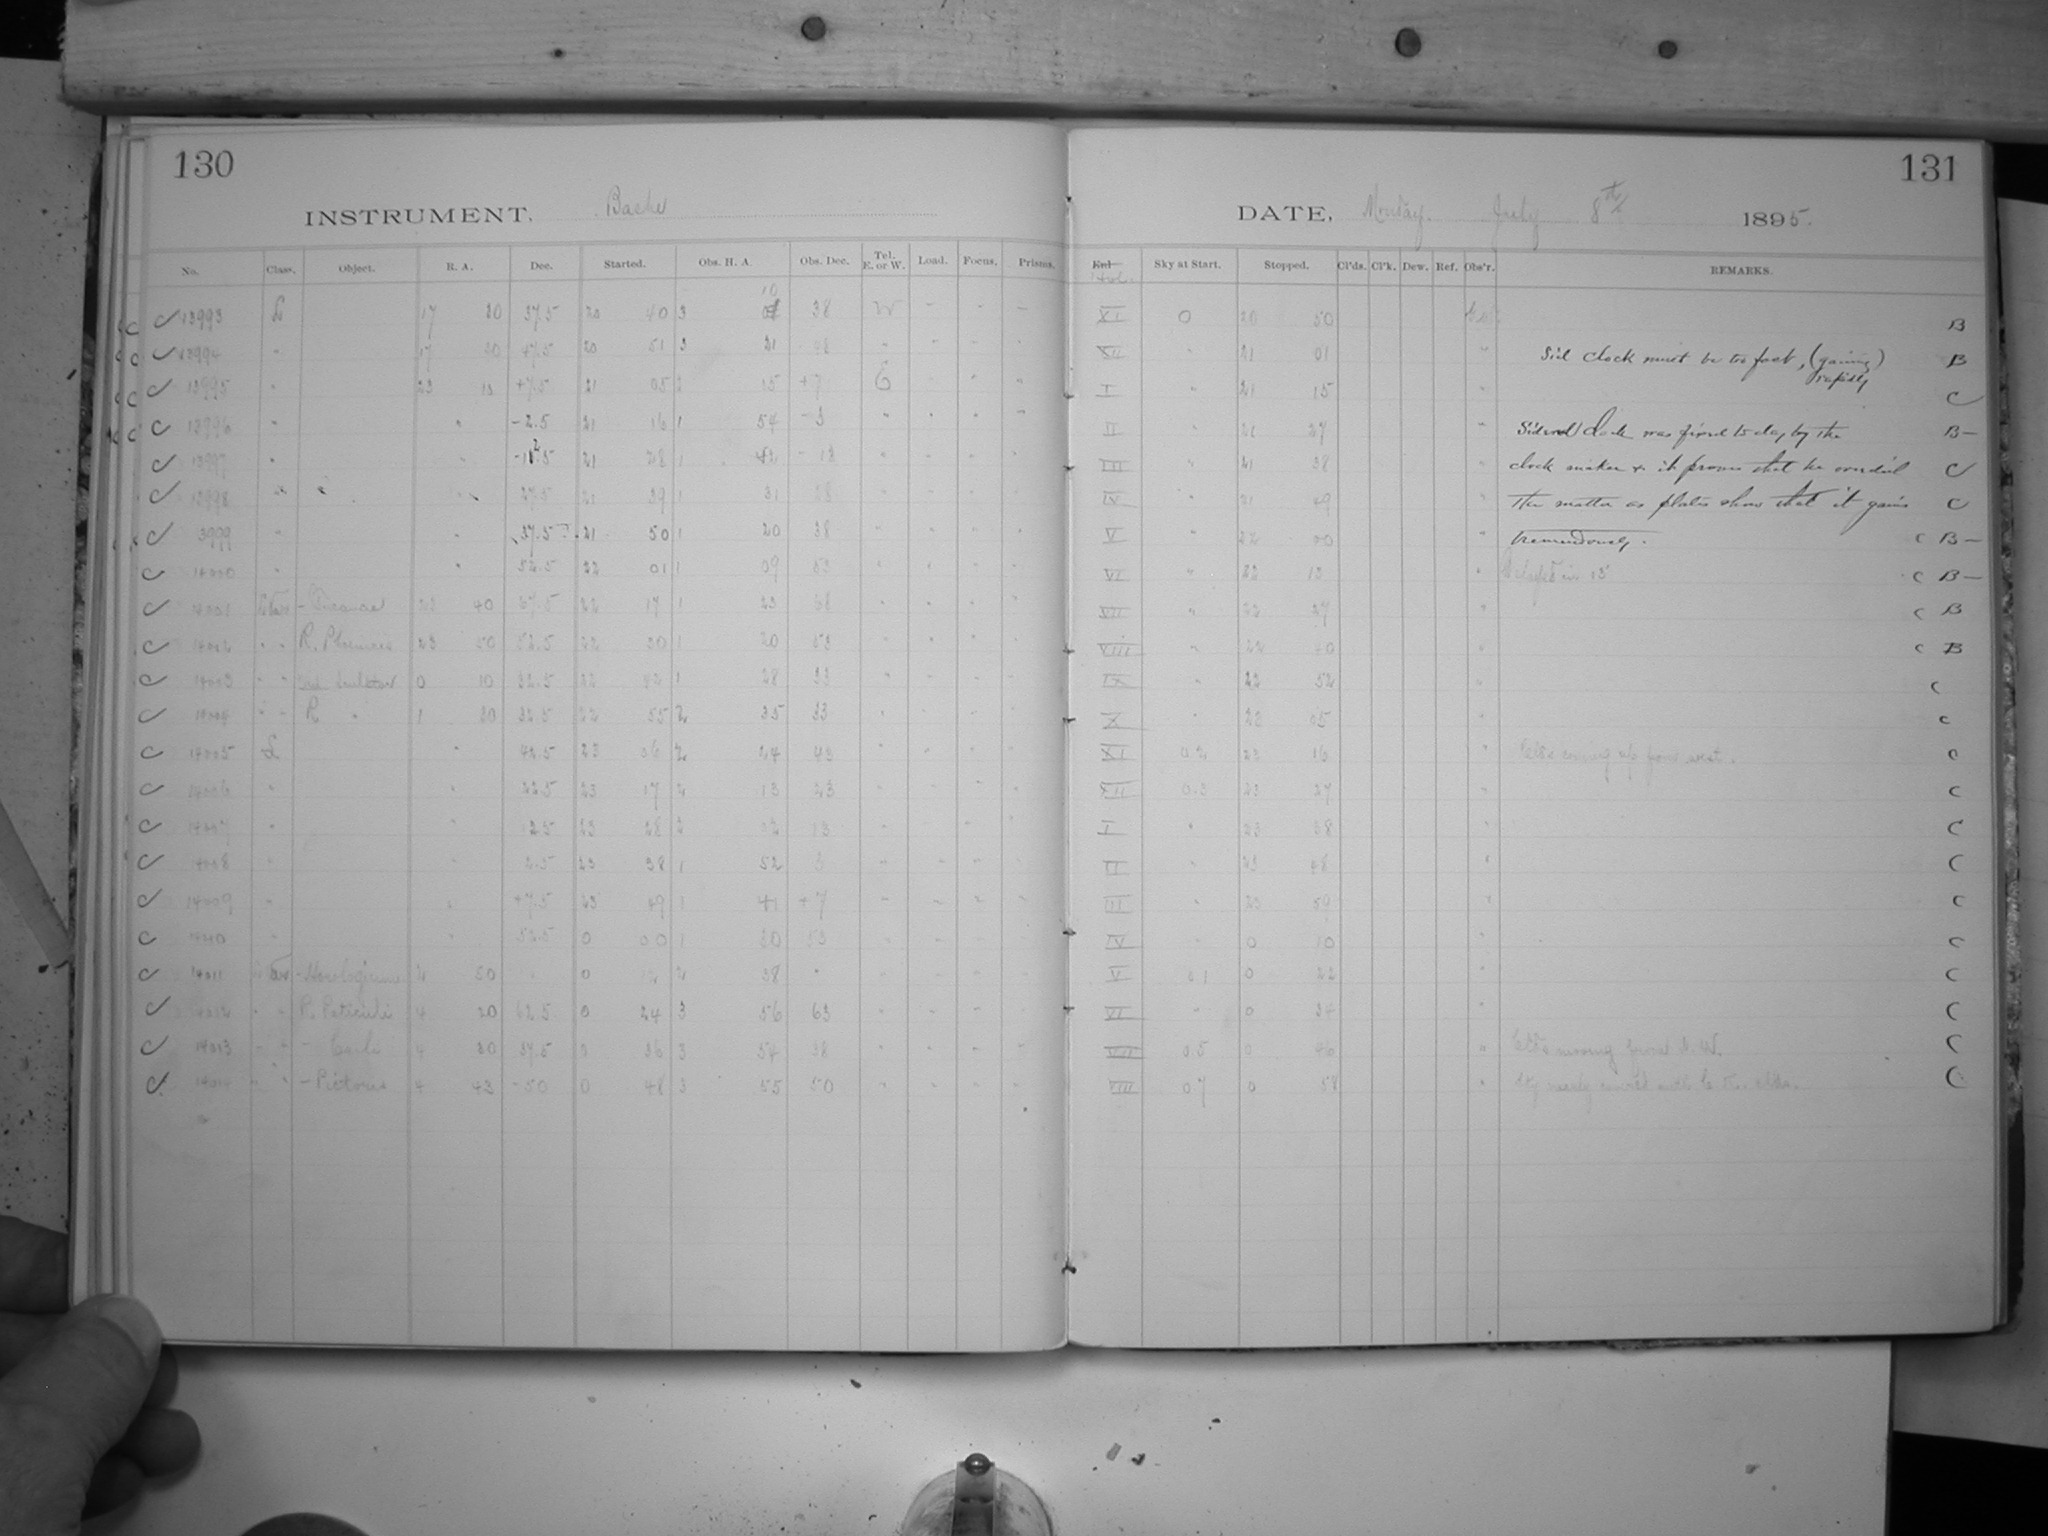 130
INSTRUMENT. Bache
No. Class. Object. R. A. Dec. Started. Obs. H. A. Obs. Dec. Tel. E. or W. Load. Focus. Prisms.
13993 L 17 20 37.5 20 40 3 10 38 W
13994 " 17 20 47.5 20 51 3 21 48 "
13995 " 23 10 +7.5 21 05 2 15 +7 E
13996 " " -2.5 21 16 1 54 -3 "
13997 " -12.5 21 28 1 42 -13 "
13998 " " 27.5 21 39 1 31 28
3999 " " 37.5 21 50 1 20 38 "
14000 " " 52.5 22 01 1 09 53 "
14001 - Tucanae 23 40 67.5 22 17 1 23 68 "
14002 " " R. Phoenicis 23 50 52.5 22 30 1 20 53 "
14003 " " Sculptor 0 10 32.5 22 42 1 28 33 "
14004 " " R " 1 20 32.5 22 55 2 35 33 "
14005 L " 42.5 23 06 2 24 43 "
14006 " " 22.5 23 17 2 13 23 "
14007 " " 12.5 23 28 2 02 13 "
14008 " " 2.5 23 38 1 52 3 "
14009 " " +7.5 23 49 1 41 +7 "
14010 " " 52.5 0 00 1 30 53 "
14011 - Horologium 2 50 " 0 12 2 38 "
14012 " " R. Reticuli 4 20 62.5 0 24 3 56 63 "
14013 - Caeli 4 30 37.5 0 36 3 54 38 "
14014 " " - Pictoris 4 43 -50 0 48 3 55 50 "
131
DATE, Monday. July 8th 1895.
Sky at Start. Stopped. Cl'ds. Cl'k. Dew. Ref. Obs'r. REMARKS.
XI 0 20 50 B
XII " 21 01 " Sid clock must be too fast, (gaining rapidly) B
I " 21 15 " C
II " 21 27 " Sidereal Clock was fixed to day by the B-
III " 21 38 " clock maker & it proves that he overdid C
IV " 21 49 " the matter as plates show that it gains C
V " 22 00 " tremendously. C B-
VI " 22 13 " C B-
VII " 22 27 " C B
VIII " 22 40 " C B
IX " 22 52 " C
X " 23 05 " C
XI 0.2 23 16 " Clds coming up from west. C
XII 0.3 23 27 " C
I " 23 38 " C
II 23 48 " C
III " 23 59 " C
IV " 0 10 C
V 0.1 0 22 " C
VI " 0 34 " C
VII 0.5 0 46 " Clds moving from N.W. C
VIII 0.7 0 58 " Sky nearly covered with clds. C